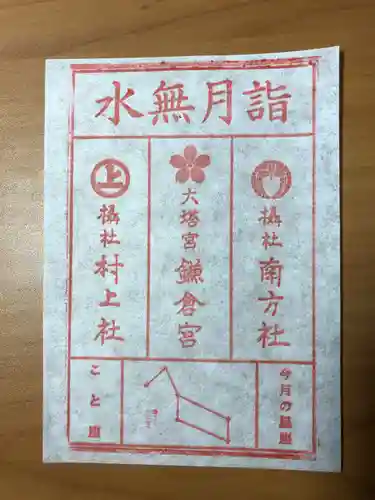 水無月詣
摂社 南方社
大塔宮 鎌倉宮
上
摂社 村上社
今月の星座
こと座